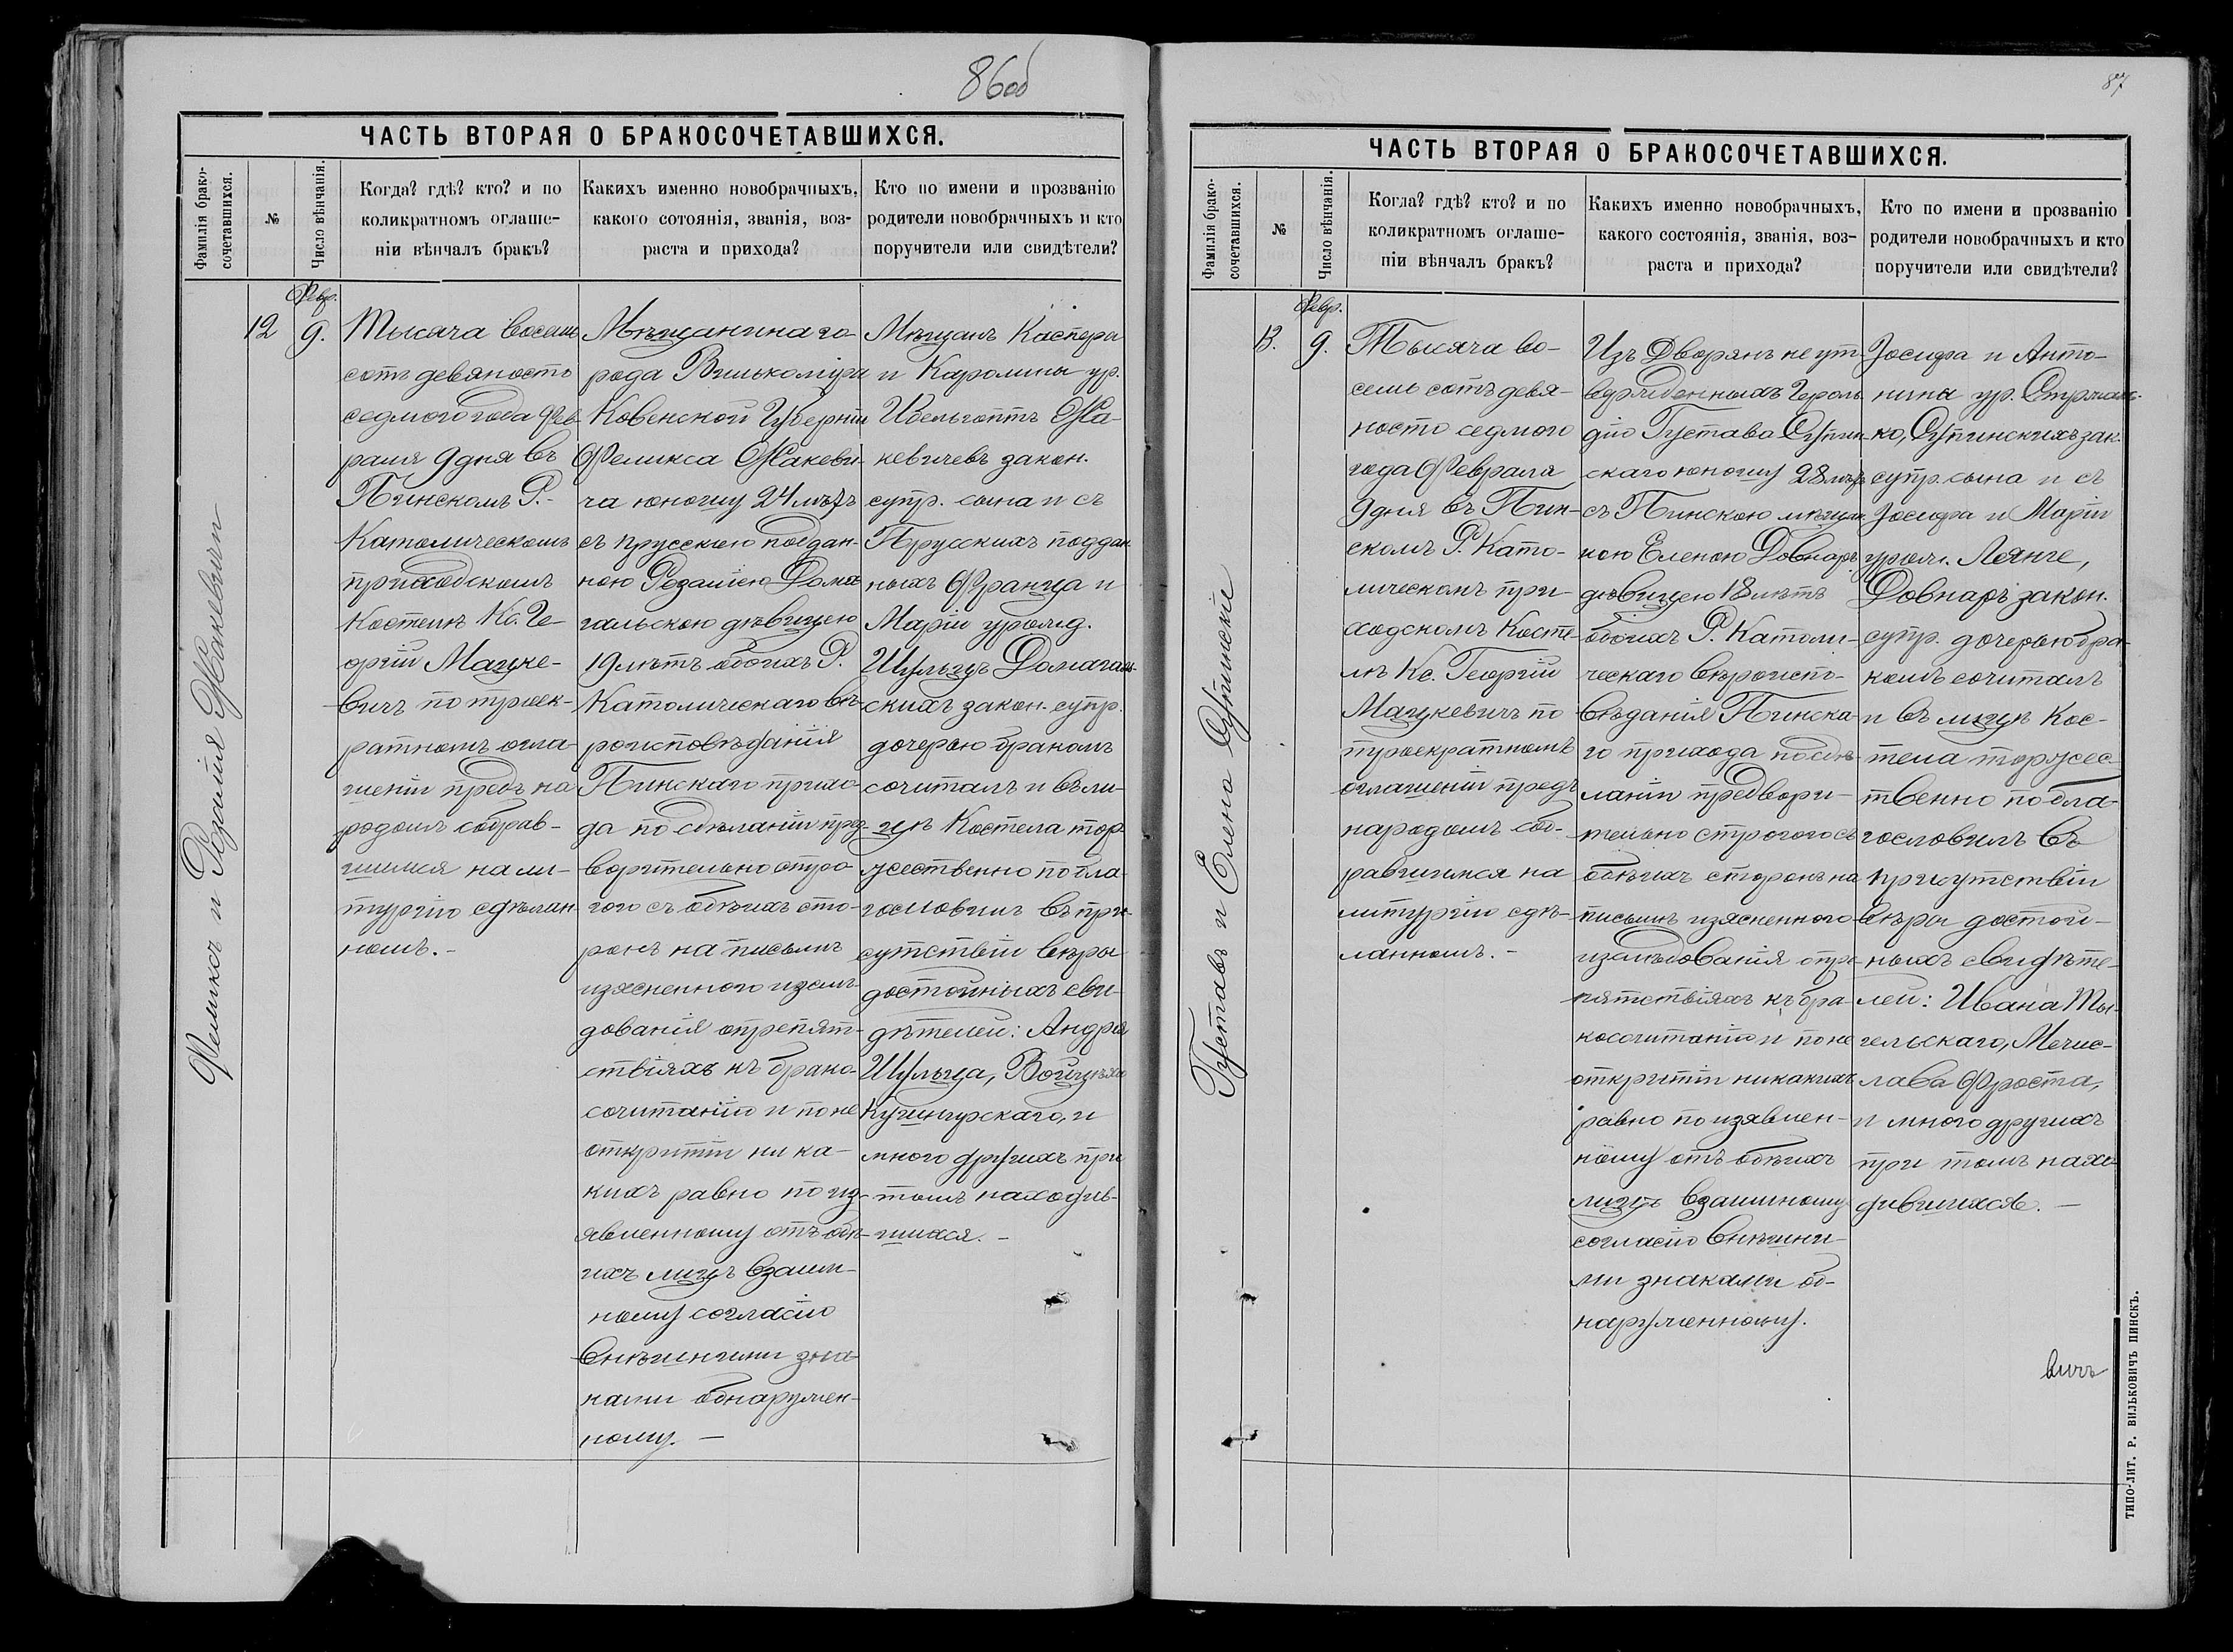 86об
ЧАСТЬ ВТОРАЯ О БРАКОСОЧЕТАВШИХСЯ.
Фамилія брако-
сочетавшихся.
№
Число вѣнчанія.
Когда? гдѣ? кто? и по
коликратномъ оглаше-
ніи вѣнчалъ бракъ?
Какихъ именно новобрачныхъ,
какого сотоянія, званія, воз-
раста и прихода?
Кто по имени и прозванію
родители новобрачныхъ и кто
поручители или свидѣтели?
Феликсъ и Розалія Жакевичи
12
Февр.
9.
Тысяча восемь
сотъ девяность
седмого года Фев-
раля 9 дня въ
Пинскомъ Р.-
Католическомъ
приходскомъ
Костелѣ Кс. Ге-
оргій Мацке-
вичъ по троек-
ратномъ огла-
шеніи предъ на
родомъ собрав-
шимся на ли-
тургію сдѣлан
номъ.-
Мѣщанина го-
рода Вилькоміра
Ковенской Губерніи
Феликса Жакеви-
ча юношу 24 лѣтъ
съ прусскою поддан-
ною Розаліею Дома
гальскою дѣвицею
19 лѣтъ обоихъ Р.
Католическаго вѣ-
роисповѣданія
Пинскаго прихо-
да по сдѣланіи пред-
ворительно стро-
гого съ обѣихъ сто-
ронъ на письмѣ
изясненного изслѣ-
дованія опрепят-
ствіяхъ къ брако-
сочитанію и по не
откритіи ни ка-
кихъ равно по из-
явленному отъ обѣ-
ихъ лицъ взаим-
ному согласію
внѣшними зна-
ками обнаружен-
ному. -
Мѣщанъ Каспера
и Каролины ур.
Жа-
кевичевъ закон.
супр. сына и съ
Прусскихъ поддан
ныхъ Франца и
Маріи урожд.
Шульцъ Домагаль-
скихъ закон. супр.
дочерью бракомъ
сочиталъ и въ ли-
цѣ Костела тор-
жественно по бла-
гословилъ въ при-
сутствіи вѣры
достойныхъ сви-
дѣтелей: Андрея
Шульца, Войцѣха
и
много другихъ при
томъ находив-
шихся. -
87
ЧАСТЬ ВТОРАЯ О БРАКОСОЧЕТАВШИХСЯ.
Фамилія брако-
сочетавшихся.
№
Число вѣнчанія.
Когла? гдѣ? кто? и по
коликратномъ оглаше-
ніи вѣнчалъ бракъ?
Какихъ именно новобрачныхъ,
какого состоянія, званія, воз-
раста и прихода?
Кто по имени и прозванію
родители новобрачныхъ и кто
поручители или свидѣтели?
Густавъ и Елена Ступинскіе
13.
Февр.
9.
Тысяча во-
семь сотъ девя-
носто седмого
года Февраля
9 дня въ Пин-
скомъ Р. Като-
лическомъ при-
ходскомъ Косте-
лѣ Кс. Георгій
Мацкевичъ по
троекратномъ
оглашеніи предъ
народомъ соб-
равшимся на
литургію сдѣ-
ланномъ. -
Изъ Дворянъ не ут-
вержденныхъ Героль
дію Густава Ступин
скаго юношу 28 лѣтъ
съ Пинскою мѣщан
кою Еленою Довнаръ
дѣвицею 18 лѣтъ
обоихъ Р. Католи-
ческаго вѣроиспо-
вѣданія Пинска-
го прихода по сдѣ-
ланіи предвори-
тельно строгого съ
обѣихъ сторонъ на
письмѣ изясненного
изслѣдованія опре-
пятствіяхъ къ бра-
косочитанію и по не
откритіи никакихъ
равно по изявлен-
ному отъ обѣихъ
лицъ взаимному
согласію внѣшни-
ми знаками об-
наруженному.
Іосифа и Анто-
нины ур.
Ступинскихъ зак.
супр. сына и съ
Іосифа и Маріи
урож. Лянге,
Довнаръ закон.
супр. дочерью бра-
комъ сочиталъ
и въ лицѣ Кос-
тела торжес-
твенно по бла-
гословилъ въ
присутствіи
вѣры достой-
ныхъ свидѣте-
лей: Ивана Мы-
гельскаго, Мечис-
лава Фроста,
и много другихъ
при томъ нахо-
дившихся. -
вичъ
ТИПО-ЛИТ. Р. ВИЛЬКОВИЧЪ ПИНСКЪ.